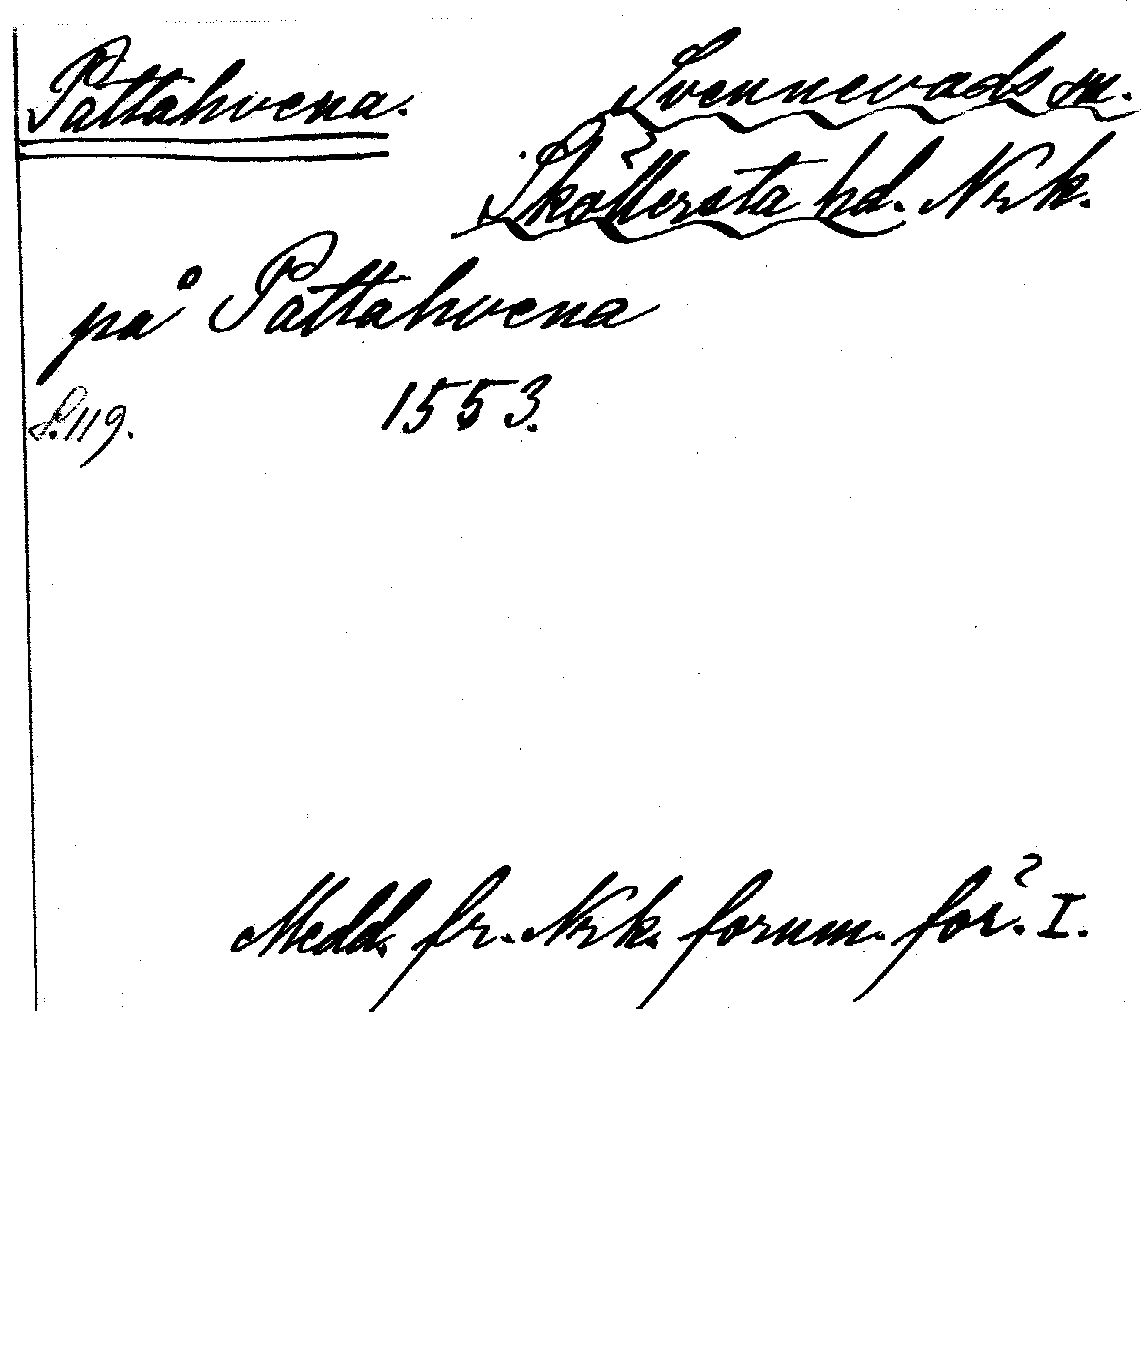 Pattahvena. Svennevads sn.
Sköllersta hd. Nrk.
på Pattahvena
S. 119. 1553.
Medd. fr. Nrk. fornm. för. I.